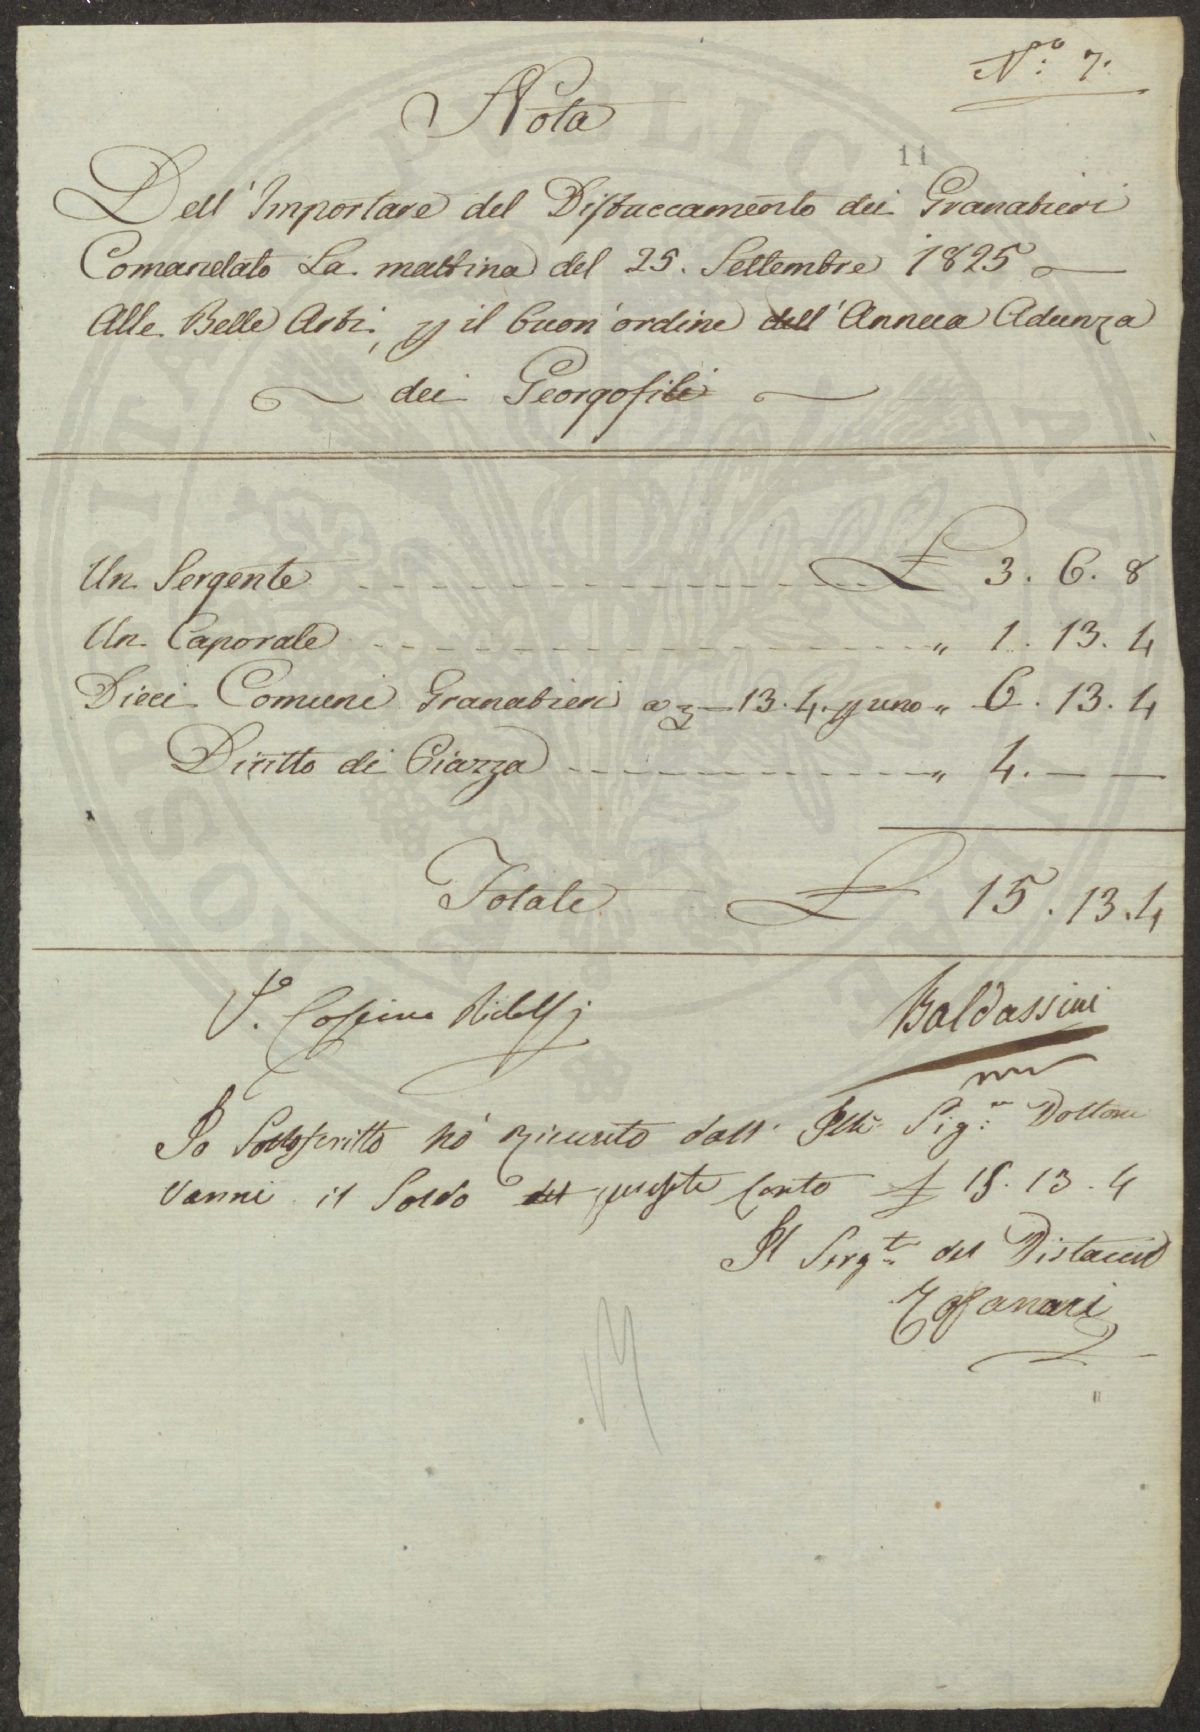 N.º 7.
Nota
11
Dell' Importare del Distaccamento dei Granatieri
Comandato La mattina del 25. Settembre 1825
Alle Belle Arti, p il buon ordine dell' Annua Adunza
dei Georgofili
Un Sergente £ 3. 6. 8
Un Caporale " 1. 13. 4
Dieci Comuni Granatieri a 13. 4. p uno " 6. 13. 4
Diritto di Piazza " 4. — —
Totale £ 15. 13. 4
V.º Cosimo Ridolfi
Baldassini
Io Sottoscritto hò ricevuto dall' Illº Sig.re Dottore
Vanni il Soldo del presente Conto £ 15. 13. 4
Il Serg.te del Distacco
Tofanari